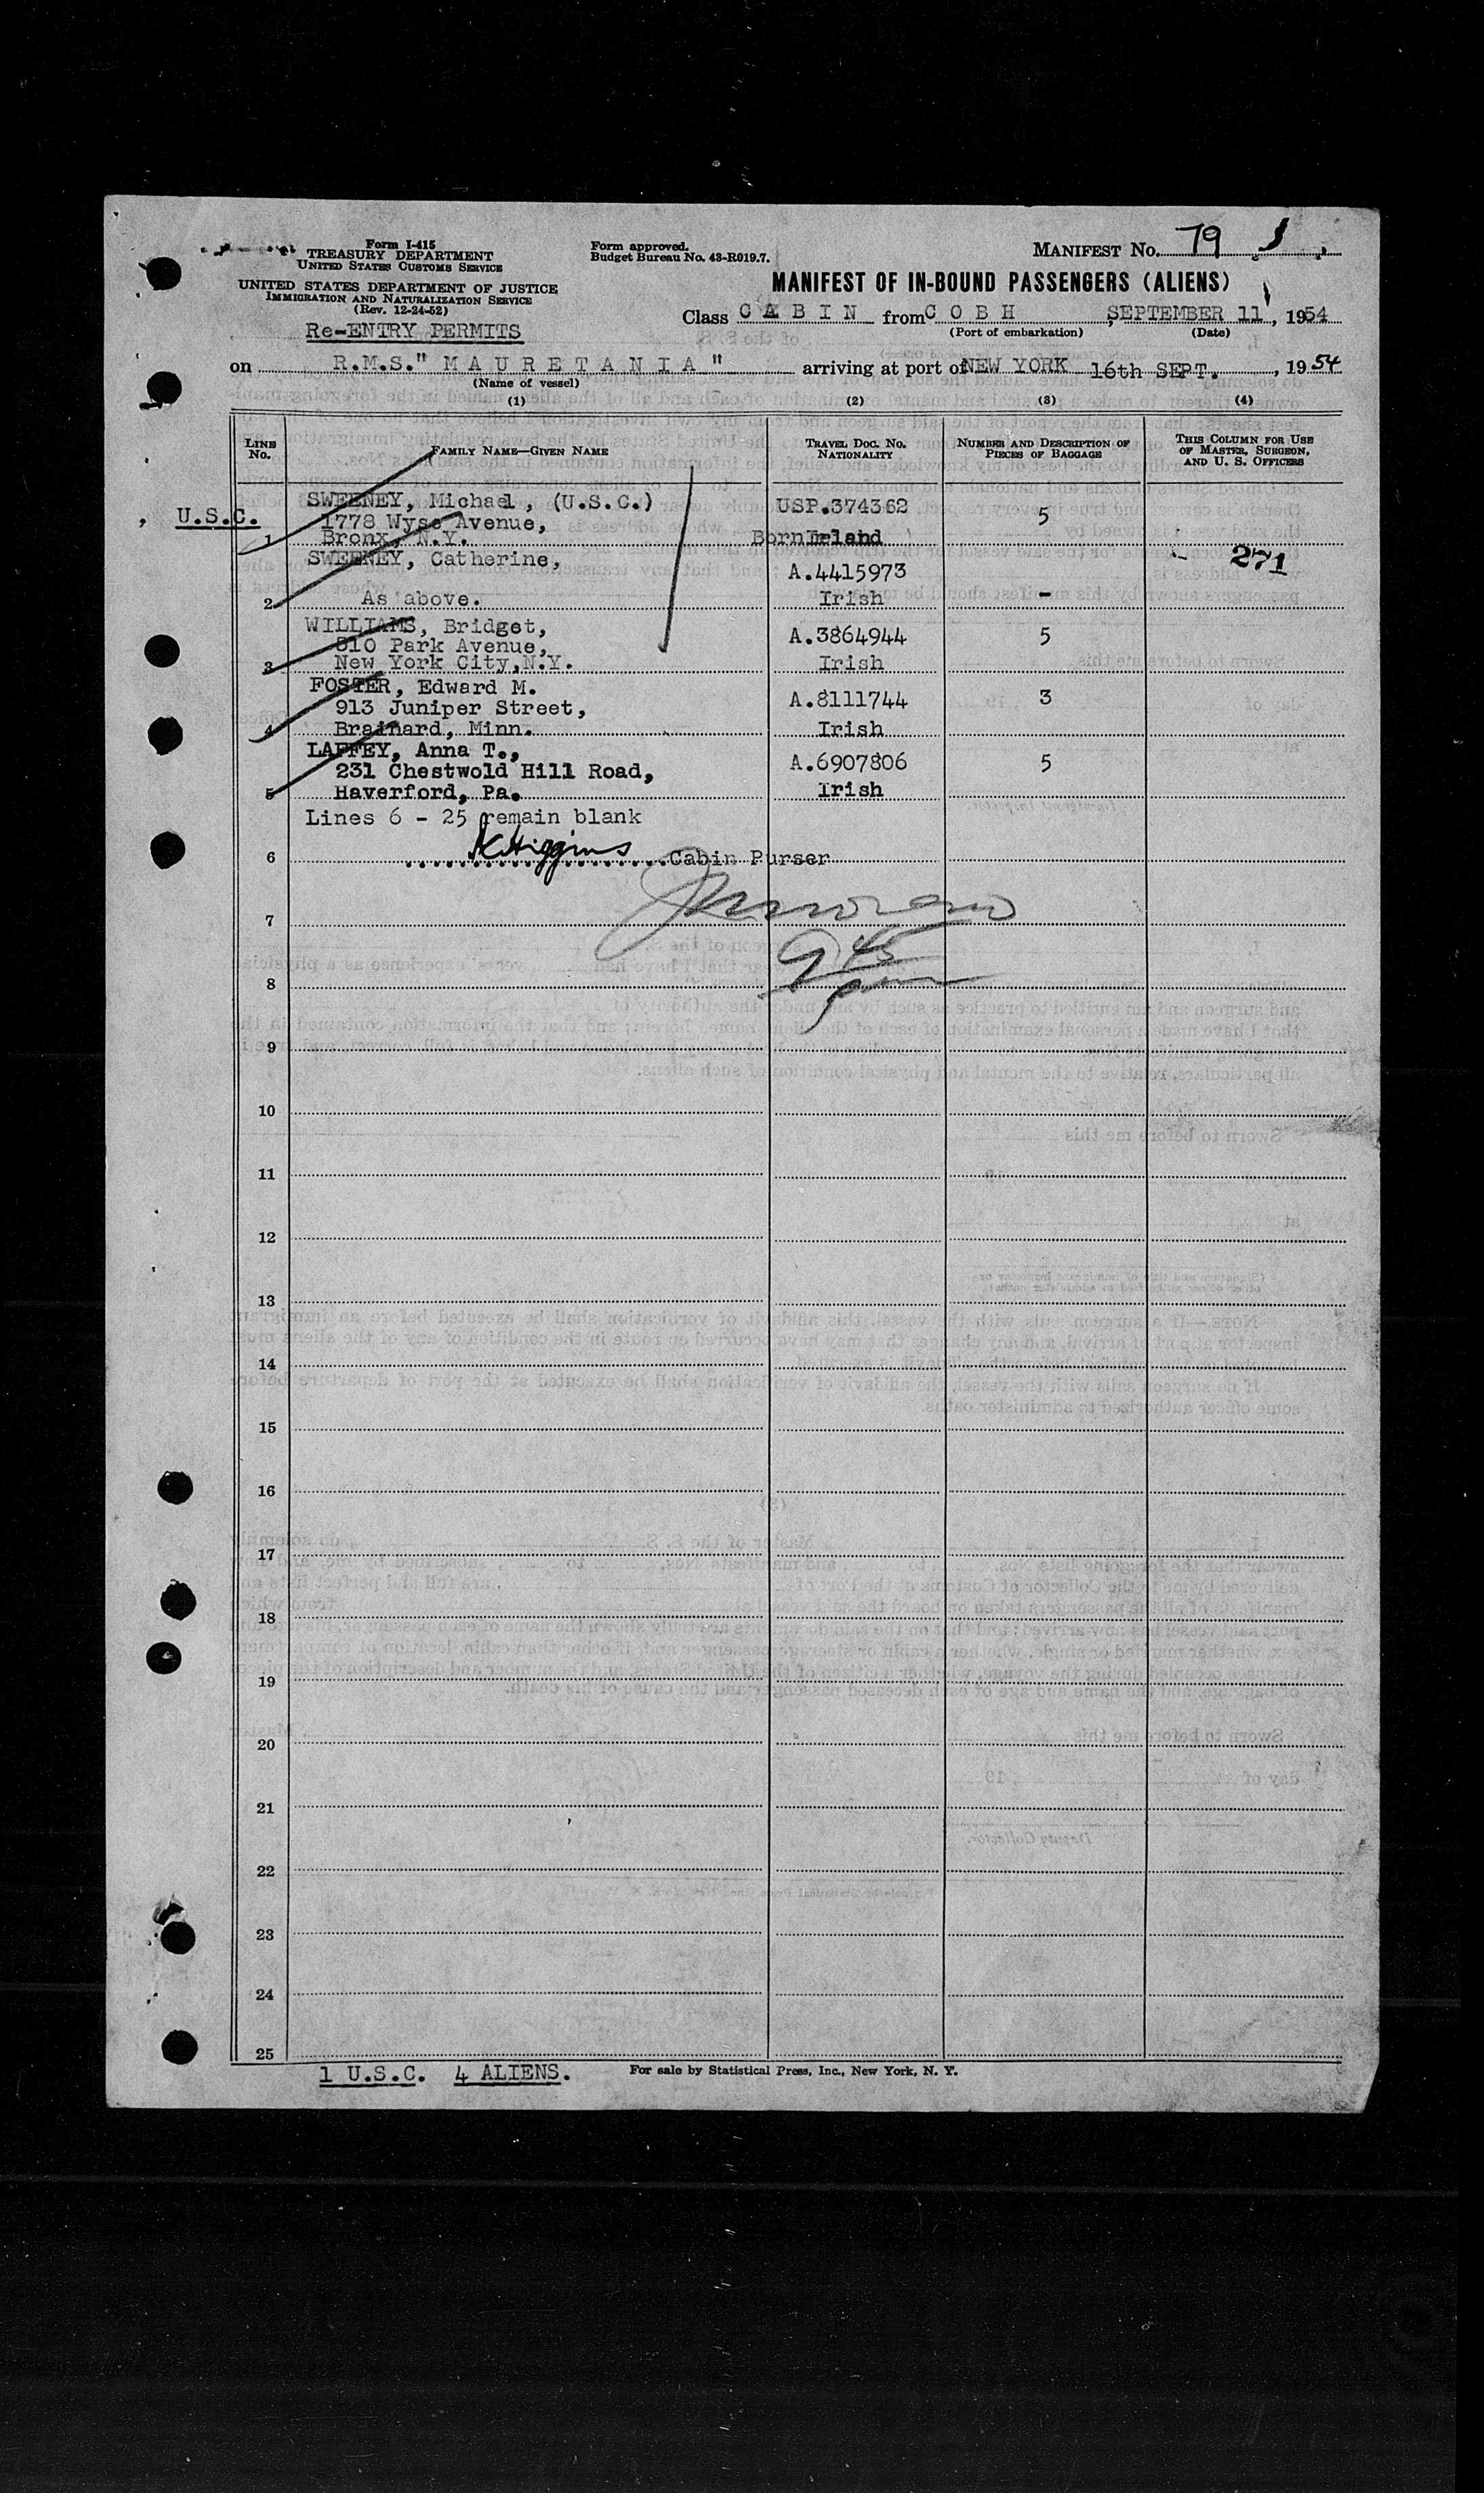 Form I-415
TREASURY DEPARTMENT
UNITED STATES CUSTOMS SERVICE
UNITED STATES DEPARTMENT OF JUSTICE
IMMIGRATION AND NATURALIZATION SERVICE
(Rev. 12-24-52)
Form approved.
Budget Bureau No. 43-R019.7.
MANIFEST NO. 79
MANIFEST OF IN-BOUND PASSENGERS (ALIENS)
Class C A B I N from C O B H, SEPTEMBER 11, 1954
(Port of embarkation) (Date)
Re-ENTRY PERMITS
on R.M.S." M A U R E T A N I A " arriving at port of NEW YORK 16th SEPT., 1954
(Name of vessel)
(1) (2) (3) (4)
LINE No. FAMILY NAME—GIVEN NAME TRAVEL DOC. NO. NATIONALITY NUMBER AND DESCRIPTION OF PIECES OF BAGGAGE THIS COLUMN FOR USE OF MASTER, SURGEON, AND U. S. OFFICERS
SWEENEY, Michael, (U.S.C.) USP.374362 5
U.S.C. 1778 Wyse Avenue,
1 Bronx, N.Y. Born Ireland
SWEENEY, Catherine, A.4415973 271
2 As above. Irish -
WILLIAMS, Bridget, A.3864944 5
810 Park Avenue,
3 New York City, N.Y. Irish
FOSTER, Edward M. A.8111744 3
913 Juniper Street,
4 Brainard, Minn. Irish
LAFFEY, Anna T., A.6907806 5
231 Chestwold Hill Road,
5 Haverford, Pa. Irish
Lines 6 - 25 remain blank
6 Higgins Cabin Purser
7
8 9 45 pm
9
10
11
12
13
14
15
16
17
18
19
20
21
22
23
24
25
1 U.S.C. 4 ALIENS.
For sale by Statistical Press, Inc., New York, N. Y.